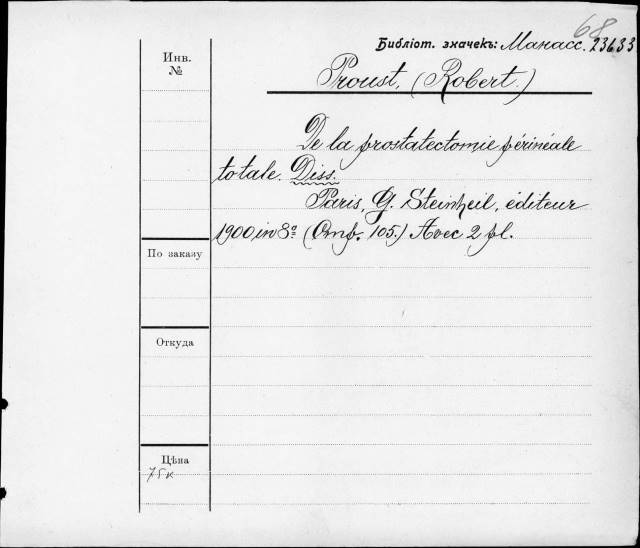 68
Библіот. значекъ: Манасс. 23633
Инв.
№
Proust, (Robert.)
De la prostatectomie périnéale
totale. Diss.
Paris, G. Steinheil, éditeur
1900, in 8º (Стр. 105.) Avec 2 pl.
По заказу
Откуда
Цѣна
75к